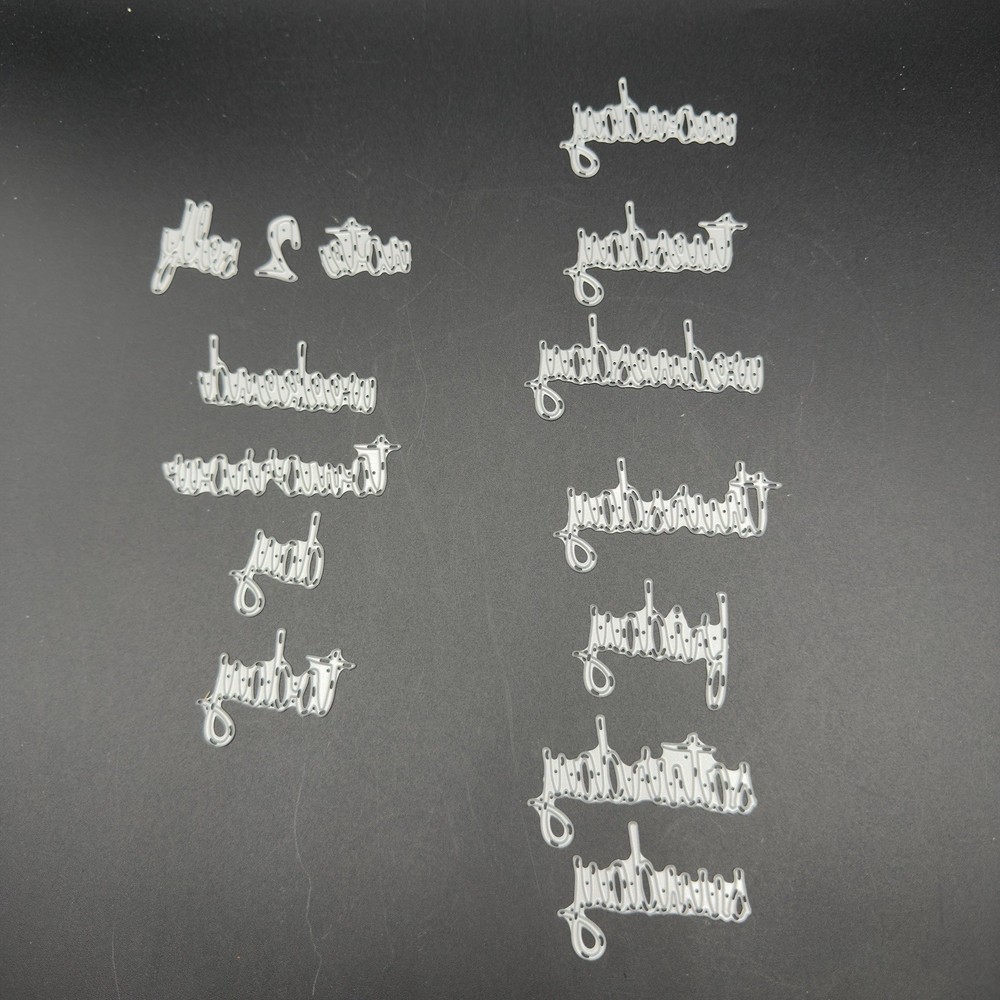 monday
tuesday
wednesday
thursday
friday
saturday
sunday
note 2 self
weekend
tomorrow
day
today